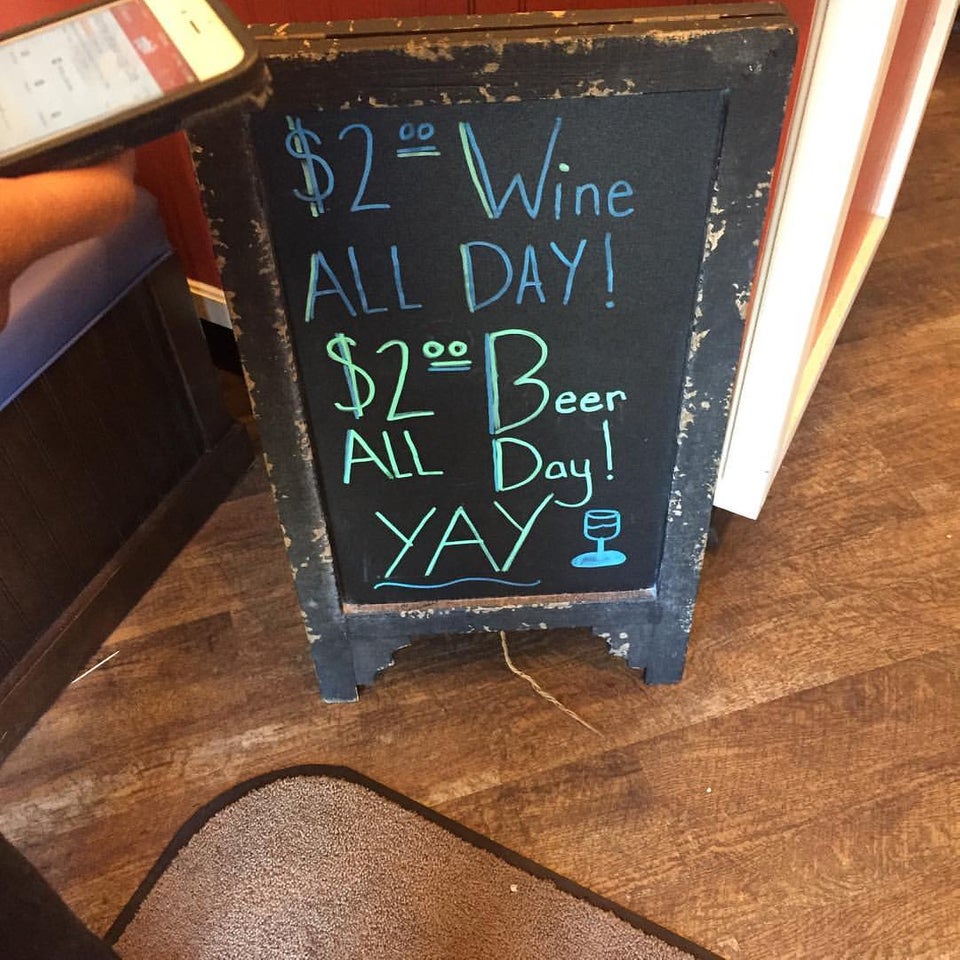 $2.00 Wine
ALL DAY!
$2.00 Beer
ALL Day!
YAY